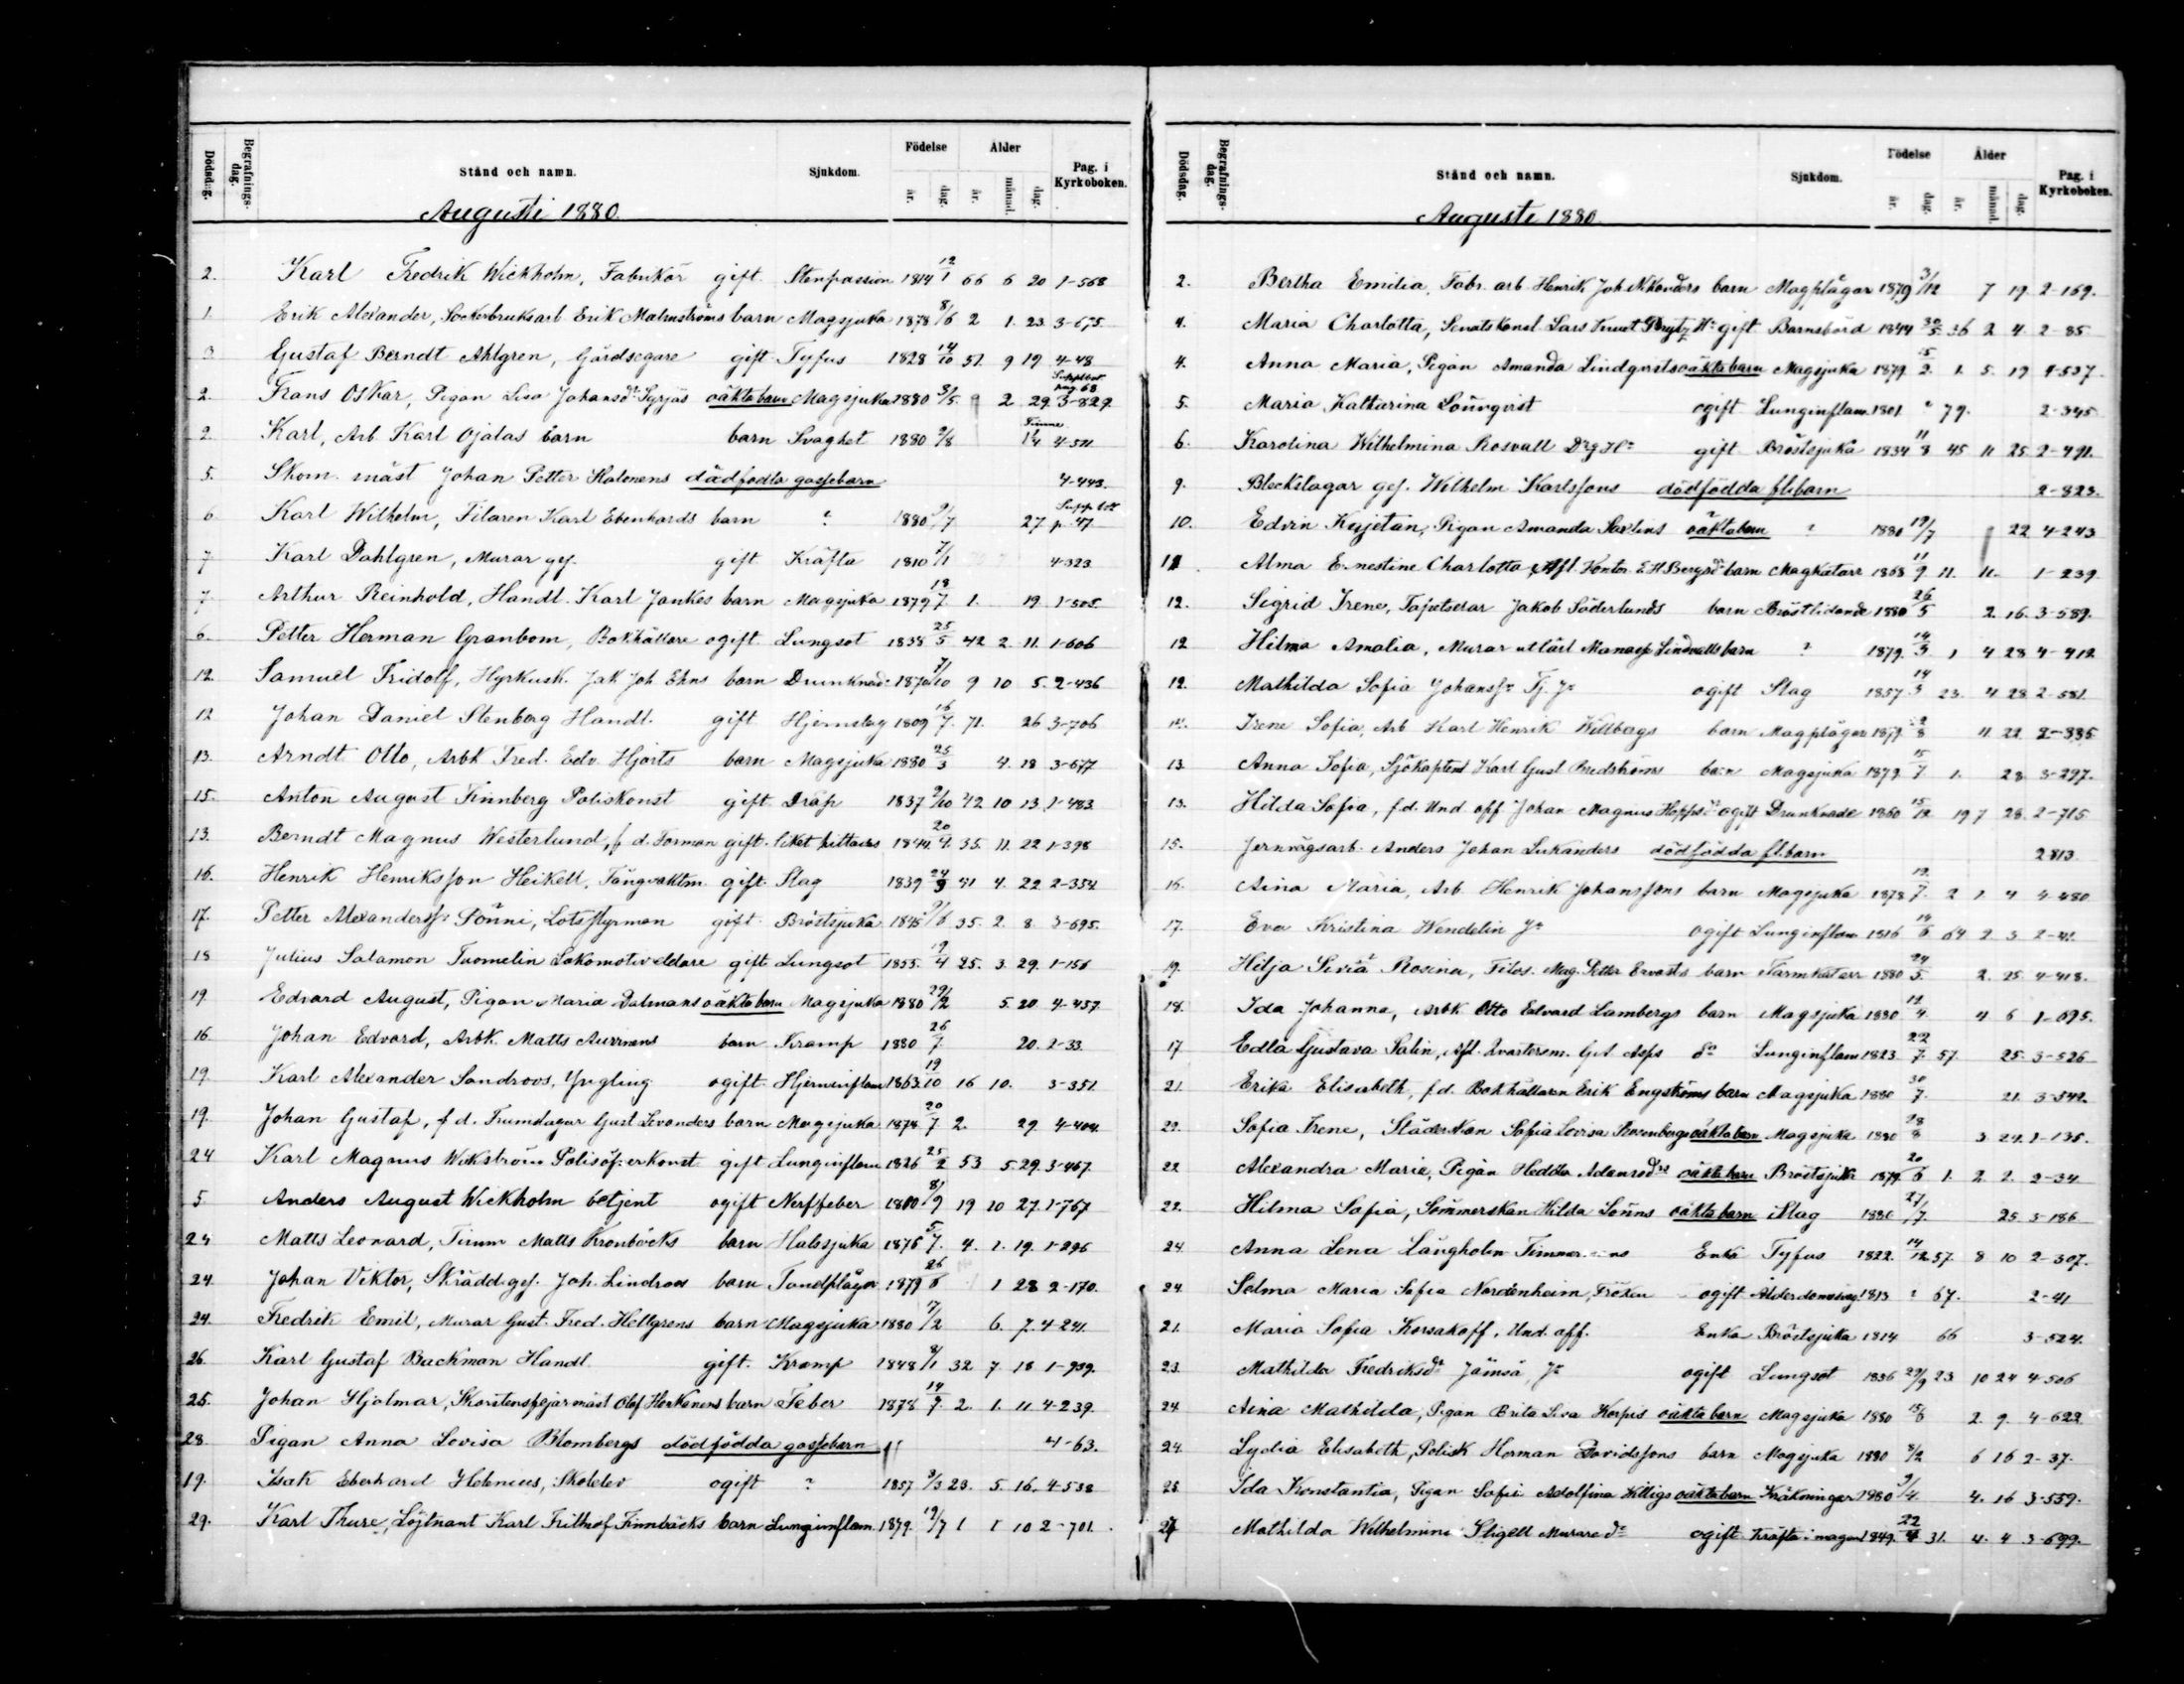 Dödsdag. Begrafningsdag. Stånd och namn. Sjukdom. Födelse år. dag. Ålder år. månad. dag. Pag. i Kyrkoboken.
Augusti 1880
2. Karl Fredrik Wickholm, Fabrikör gift Stenpassion 1814 12/1 66 6 20 1-568
1. Erik Alexander, Sockerbruksarb Erik Malmströms barn Magsjuka 1878 8/6 2 1. 23 3-675
3 Gustaf Berndt Ahlgren, Gårdsegare gift Tyfus 1828 14/10 51. 9 19 4-48
2. Frans Oskar, Pigan Lisa Johansdr Syrjäs oäkta barn Magsjuka 1880 3/5. 2 29. Supplbot pag 68 3-829
2. Karl, Arb. Karl Ojalas barn barn Svaghet 1880 2/8 Timme 14 4-511
5. Skom. mäst Johan Petter Halonens dödfödda gossebarn 4-443.
6 Karl Wilhelm, Filaren Karl Ebenhards barn ? 1880 9/7 27 p. 47
7 Karl Dahlgren, Murar gef. gift Kräfta 1810 7/1 4-323
7. Arthur Reinhold, Handl. Karl Jankes barn Magsjuka 1879 18/7 1. 19 1-505.
6. Petter Herman Granbom, Bokhållare ogift Lungsot 1838 25/5 42 2 11. 1-606
12. Samuel Fridolf, Hyrkusk. Jak Joh Ehns barn Drunknade 1870 7/10 9 10 5. 2-436
12 Johan Daniel Stenberg Handl. gift Hjernslag 1809 16/7. 71. 26 3-706
13. Arndt Otto, Arbk Fred. Edv. Hjorts barn Magsjuka 1880 25/3 4. 18 3-677
15. Anton August Finnberg Poliskonst gift Dråp 1837 2/10 42 10 13. 1-483
13. Berndt Magnus Westerlund, f d. Forman gift. liket hittades 1844. 20/4. 35. 11. 22 1-398
16. Henrik Henriksson Heikell, Fångvaktm. gift Slag 1839 24/3 41 4. 22 2-354
17. Petter Alexanderss. Pönni, Lotsstyrman gift Bröstsjuka 1845 9/6 35. 2. 8 3-695.
18 Julius Salamon Tuomelin Lokomotiveldare gift Lungsot 1855. 19/4 25. 3. 29. 1-156
19. Edvard August, Pigan Maria Dalmans oäkta barn Magsjuka 1880 29/2 5. 20 4-457
16. Johan Edvard, Arbk. Matts Aurinens barn Kramp 1880 26/7. 20. 2-33.
19. Karl Alexander Sandroos, Yngling ogift Hjerninflam 1863. 19/10 16 10. 3-351
19. Johan Gustaf, f d. Trumslagar Gust Levanders barn Magsjuka 1878 20/7 2. 29 4-404.
24 Karl Magnus Wikström Polisöf:erkonst gift Lunginflam 1826 25/2 53 5 29. 3-467.
5 Anders August Wickholm betjent ogift Nerffeber 1860. 8/9 19 10 27. 1-767
24 Matts Leonard, Timm Matts Kronbäcks barn Halssjuka 1876 5/7. 4. 1. 19. 1-296
24. Johan Viktor, Skrädd. gef. Joh. Lindroos barn Tandplågor 1879 26/6 1 28 2-170.
24. Fredrik Emil, Murar Gust. Fred. Hellgrens barn Magsjuka 1880 17/2 6. 7. 4-241.
26. Karl Gustaf Backman Handl. gift. Kramp 1848 8/1 32 7 18 1-939.
25. Johan Hjalmar, Skorstensfejarmäst Olof Herkonens barn Feber 1878 14/7. 2. 1. 11 4-239.
28. Pigan Anna Lovisa Blombergs dödfödda gossebarn 4-63.
19. Isak Eberhard Helenius, Skolelev ogift ? 1857 3/3 23. 5. 16. 4-538
29. Karl Thure, Löjtnant Karl Frithiof Finnbäcks barn Lunginflam. 1879. 19/7 1 1 10 2-701.
Dödsdag. Begrafningsdag. Stånd och namn. Sjukdom. Födelse år. dag. Ålder år. månad. dag. Pag. i Kyrkoboken.
Augusti 1880
2. Bertha Emilia, Fabr. arb. Henrik Joh. Nikanders barn Magplågor 1879 3/12 7 19. 2-169.
4. Maria Charlotta, Senatskonsl Lars Knut Prytz Ha gift Barnsbörd 1844 30/5. 36 2 4. 2-85
4. Anna Maria, Pigan Amanda Lindqvists oäkta barn Magsjuka 1879. 15/2. 1. 5. 19 4-537.
5. Maria Katharina Lönnqvist ogift Lunginflam 1801. ? 79. 2-345
6. Karolina Wilhelmina Rosvall gift Bröstsjuka 1834 11/8 45 11 25. 2-491.
9. Bleckslagar gef. Wilhelm Karlssons dödfödda fl.barn 2-823.
10. Edvin Kajetan, Pigan Amanda Saxlins oäkta barn ? 1880 19/7 22 4-243
11. Alma Ernestine Charlotta, Afl. Kontor. barn Magkatarr 1868 11/9. 11. 11. 1-239
12. Sigrid Irene, Tapetserar Jakob Söderlunds barn Bröstlidande 1880 26/5 2. 16. 3-589.
12 Hilma Amalia, Murar Lindvalls barn ? 1879. 14/3 1 4 28 4-412
12. Mathilda Sofia Johansfr ogift Slag 1857. 14/3 23. 4 28 2-581.
Irene Sofia, Arb Karl Henrik Willbergs barn Magplågor 1879. 11. 22. 2-335
13. Anna Sofia, Sjökaptens Karl Gust Bredströms barn Magsjuka 1879. 15/7 1. 28 3-297.
13. Hilda Sofia, f.d. Und off Johan Magnus ogift Drunknade 1860 15/12. 19 7 28. 2-715
15. Jernvägsarb. Anders Johan Lukanders dödfödda fl.barn 2 813
16. Aina Maria, Arb. Henrik Johanssons barn Magsjuka 1878 12/7. 2 1. 4 4-480
17. Eva Kristina Wendelin ogift Lunginflam 1816 14/6 64 2. 3. 2-41.
19. Hilja Rosina, Filos. Mag. Petter Ervasts barn Tarmkatarr 1880 24/5. 2. 25. 4-418.
18. Ida Johanna, Arbk Otto Edvard Lambergs barn Magsjuka 1880 12/4. 4 6 1-695.
17 Edla Gustava Salin, Afl. Lunginflam 1823. 22/7. 57. 25. 3-526
21. Erika Elisabeth, f.d. Bokhållaren Erik Engströms barn Magsjuka 1880 30/7. 21. 3-342.
22. Sofia Irene, Städerskan Sofia Lovisa oäkta barn Magsjuka 1880 28/8 3. 24. 1-135.
22 Alexandra Maria, Pigan Hedda Adamsdrs oäkta barn Bröstsjuka 1879. 20/6 1. 2 2. 2-34
22. Hilma Sofia, Sömmerskan Hilda Lönns oäkta barn Slag 1880 27/7. 25 3-186
24. Anna Lena Långholm Enka Tyfus 1822. 14/12 57. 8 10 2-307.
24. Selma Maria Sofia Nordenheim, Fröken ogift Ålderdomssvag 1813 ? 67. 2-41
21. Maria Sofia Korsakoff, Und. off. Enka Bröstsjuka 1814 66 3-524.
23. Mathilda Fredriksdr Jämsä ogift Lungsot 1856 29/9 23. 10 24 4-506
24. Aina Mathilda, Pigan Brita Lisa Korpis oäkta barn Magsjuka 1880 15/6 2. 9. 4-622
24. Lydia Elisabeth, Polisk Herman Davidssons barn Magsjuka 1880 8/2 6 16 2-37.
25. Ida Konstantia, Pigan Sofia Adolfina Willigs oäkta barn Kräkningar 1880 9/4 4. 16 3-559.
27 Mathilda Wilhelmina Stigell Murare ogift Kräfta i magen 1849. 22/4 31. 4. 4 3-699.